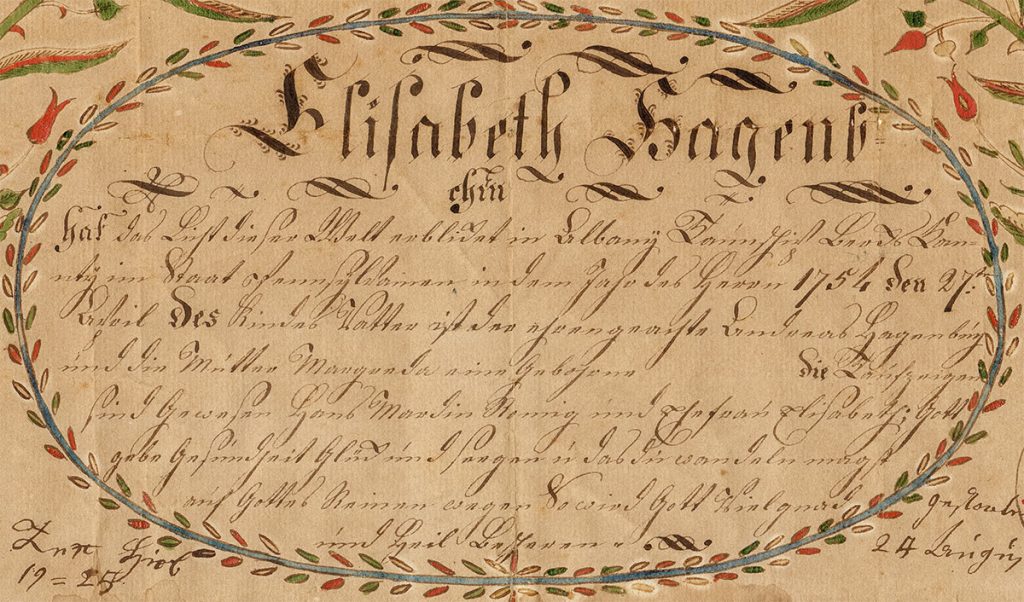 Elisabeth Hagenb
chin
hat das Licht dieser Welt erblicket in Albany Taunschip Berds Caun-
ty im Staat Pennsylvanien in dem Jahr des Herrn 1754 den 27t:
April Des Kindes Vatter ist der ehrengeachte Andreas Hagenbuch
und die Mutter Margreda eine Gebohrne die Taufzeigen
sind Gewesen Hans Mardin Romig und Ehefrau Elisabeth: Gott
gebe Gesundheit Glück und seegen u das du wandeln magst
auf Gottes Reinen wegen So wird Gott Viel gnad
und Heil
Hiob
19=25
gestorbe
24 Augus